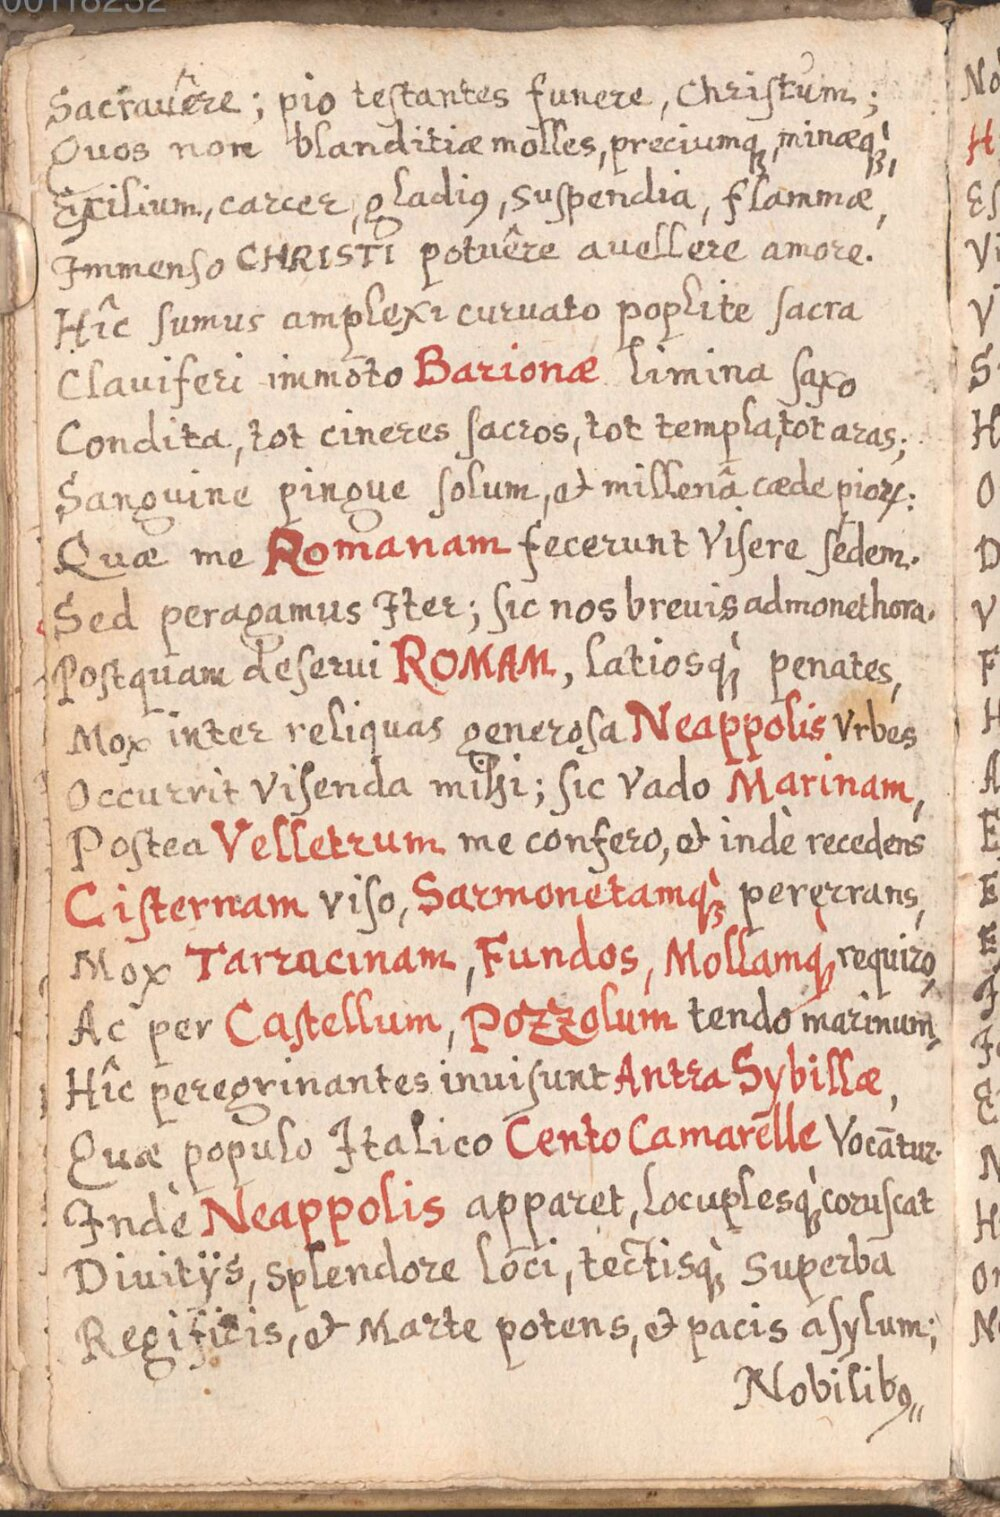 00118232
Sacrauêre; pio teſtantes funere, Chriſtum;
Quos non blanditiæ molles, preciumqꝫ, minæqꝫ̀,
Exilium, carcer, gladiꝰ, suſpendia, flammæ,
Immenſo CHRISTI potuêre auellere amore.
Hîc ſumus amplexi curuato poplite ſacra
Clauiferi immoto Barionæ limina ſaxo
Condita, tot cineres ſacros, tot templa, tot aras;
Sanguine pingue ſolum, et millenâ cæde pioꝝ:
Quæ me Romanam fecerunt Viſere ſedem.
Sed peragamus Iter; ſic nos breuis admonet hora.
Poſtquam deſerui ROMAM, latiosqꝫ̀ penates,
Mox inter reliquas generoſa Neappolis Vrbes
Occurrit Viſenda mihi; ſic Vado Marinam,
Poſtea Velletrum me confero, et indè recedens
Ciſternam viſo, Sarmonetamqꝫ̀ pererrans,
Mox Tarracinam, Fundos, Mollamqꝫ̀ requiro,
Ac per Caſtellum, Pozzolum tendo marinum,
Hîc peregrinantes inuiſunt Antra Sybillæ,
Quæ populo Italico Cento Camarēlle Vocātur.
Indè Neappolis apparet, locuplesqꝫ̀ coruſcat
Diuitÿs, splendore loci, tectisqꝫ̀ superba
Regificis, et Marte potens, et pacis aſylum;
Nobilibꝰ,,